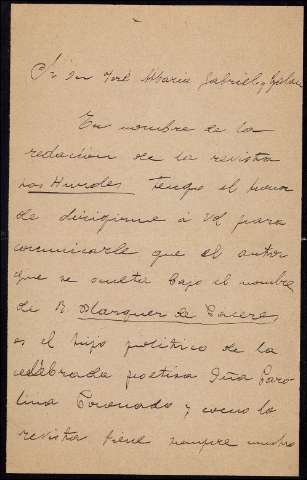 Sr Dn José Maria Gabriel y Galan
En nombre de la
redacción de la revista
Las Hurdes tengo el honor
de dirigirme á Vd para
comunicarle que el autor
que se oculta bajo el nombre
de B. Marquez de Caceres
es el hijo politico de la
celebrada poetisa Dña Caro-
lina Coronado y como la
revista tiene siempre mucho